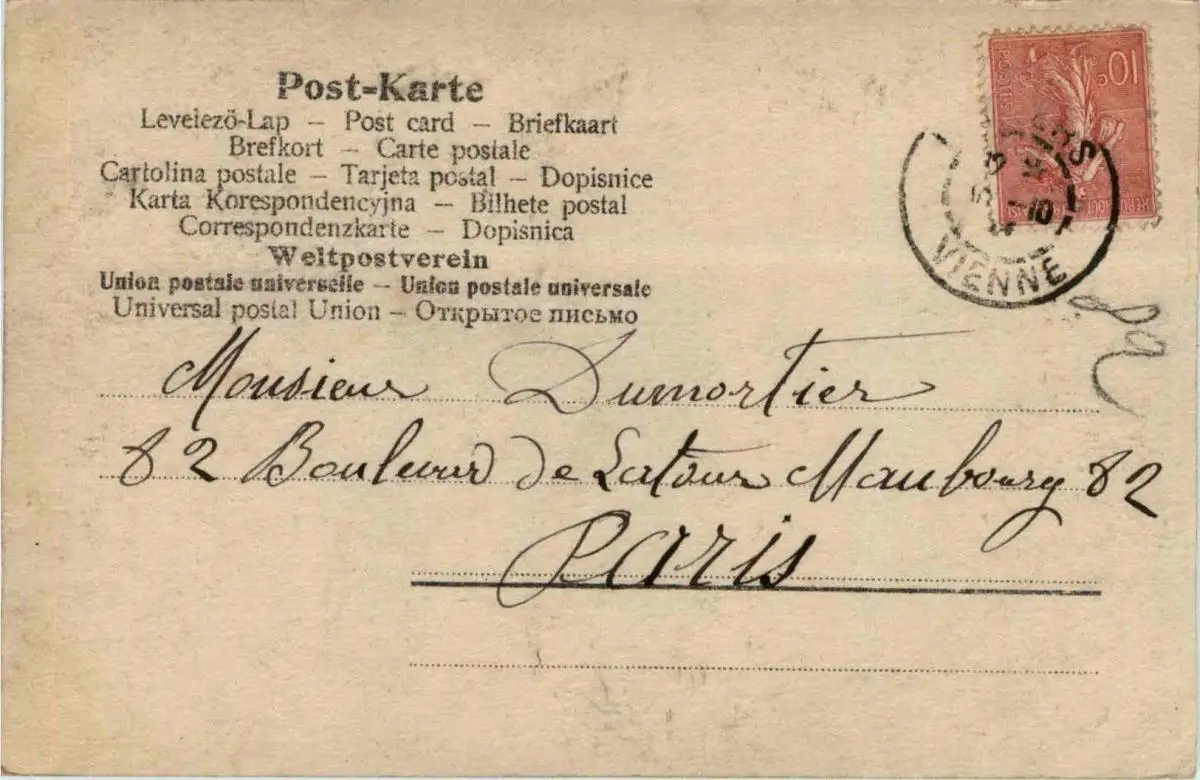 Post-Karte
Levelező-Lap – Post card – Briefkaart
Brefkort – Carte postale
Cartolina postale – Tarjeta postal – Dopisnice
Karta Korespondencyjna – Bilhete postal
Correspondenzkarte – Dopisnica
Weltpostverein
Union postale universelle – Union postale universale
Universal postal Union – Открытое письмо
10c
POSTES
VIENNE
Monsieur Dumortier
82 Boulevard de Latour Maubourg 82
Paris